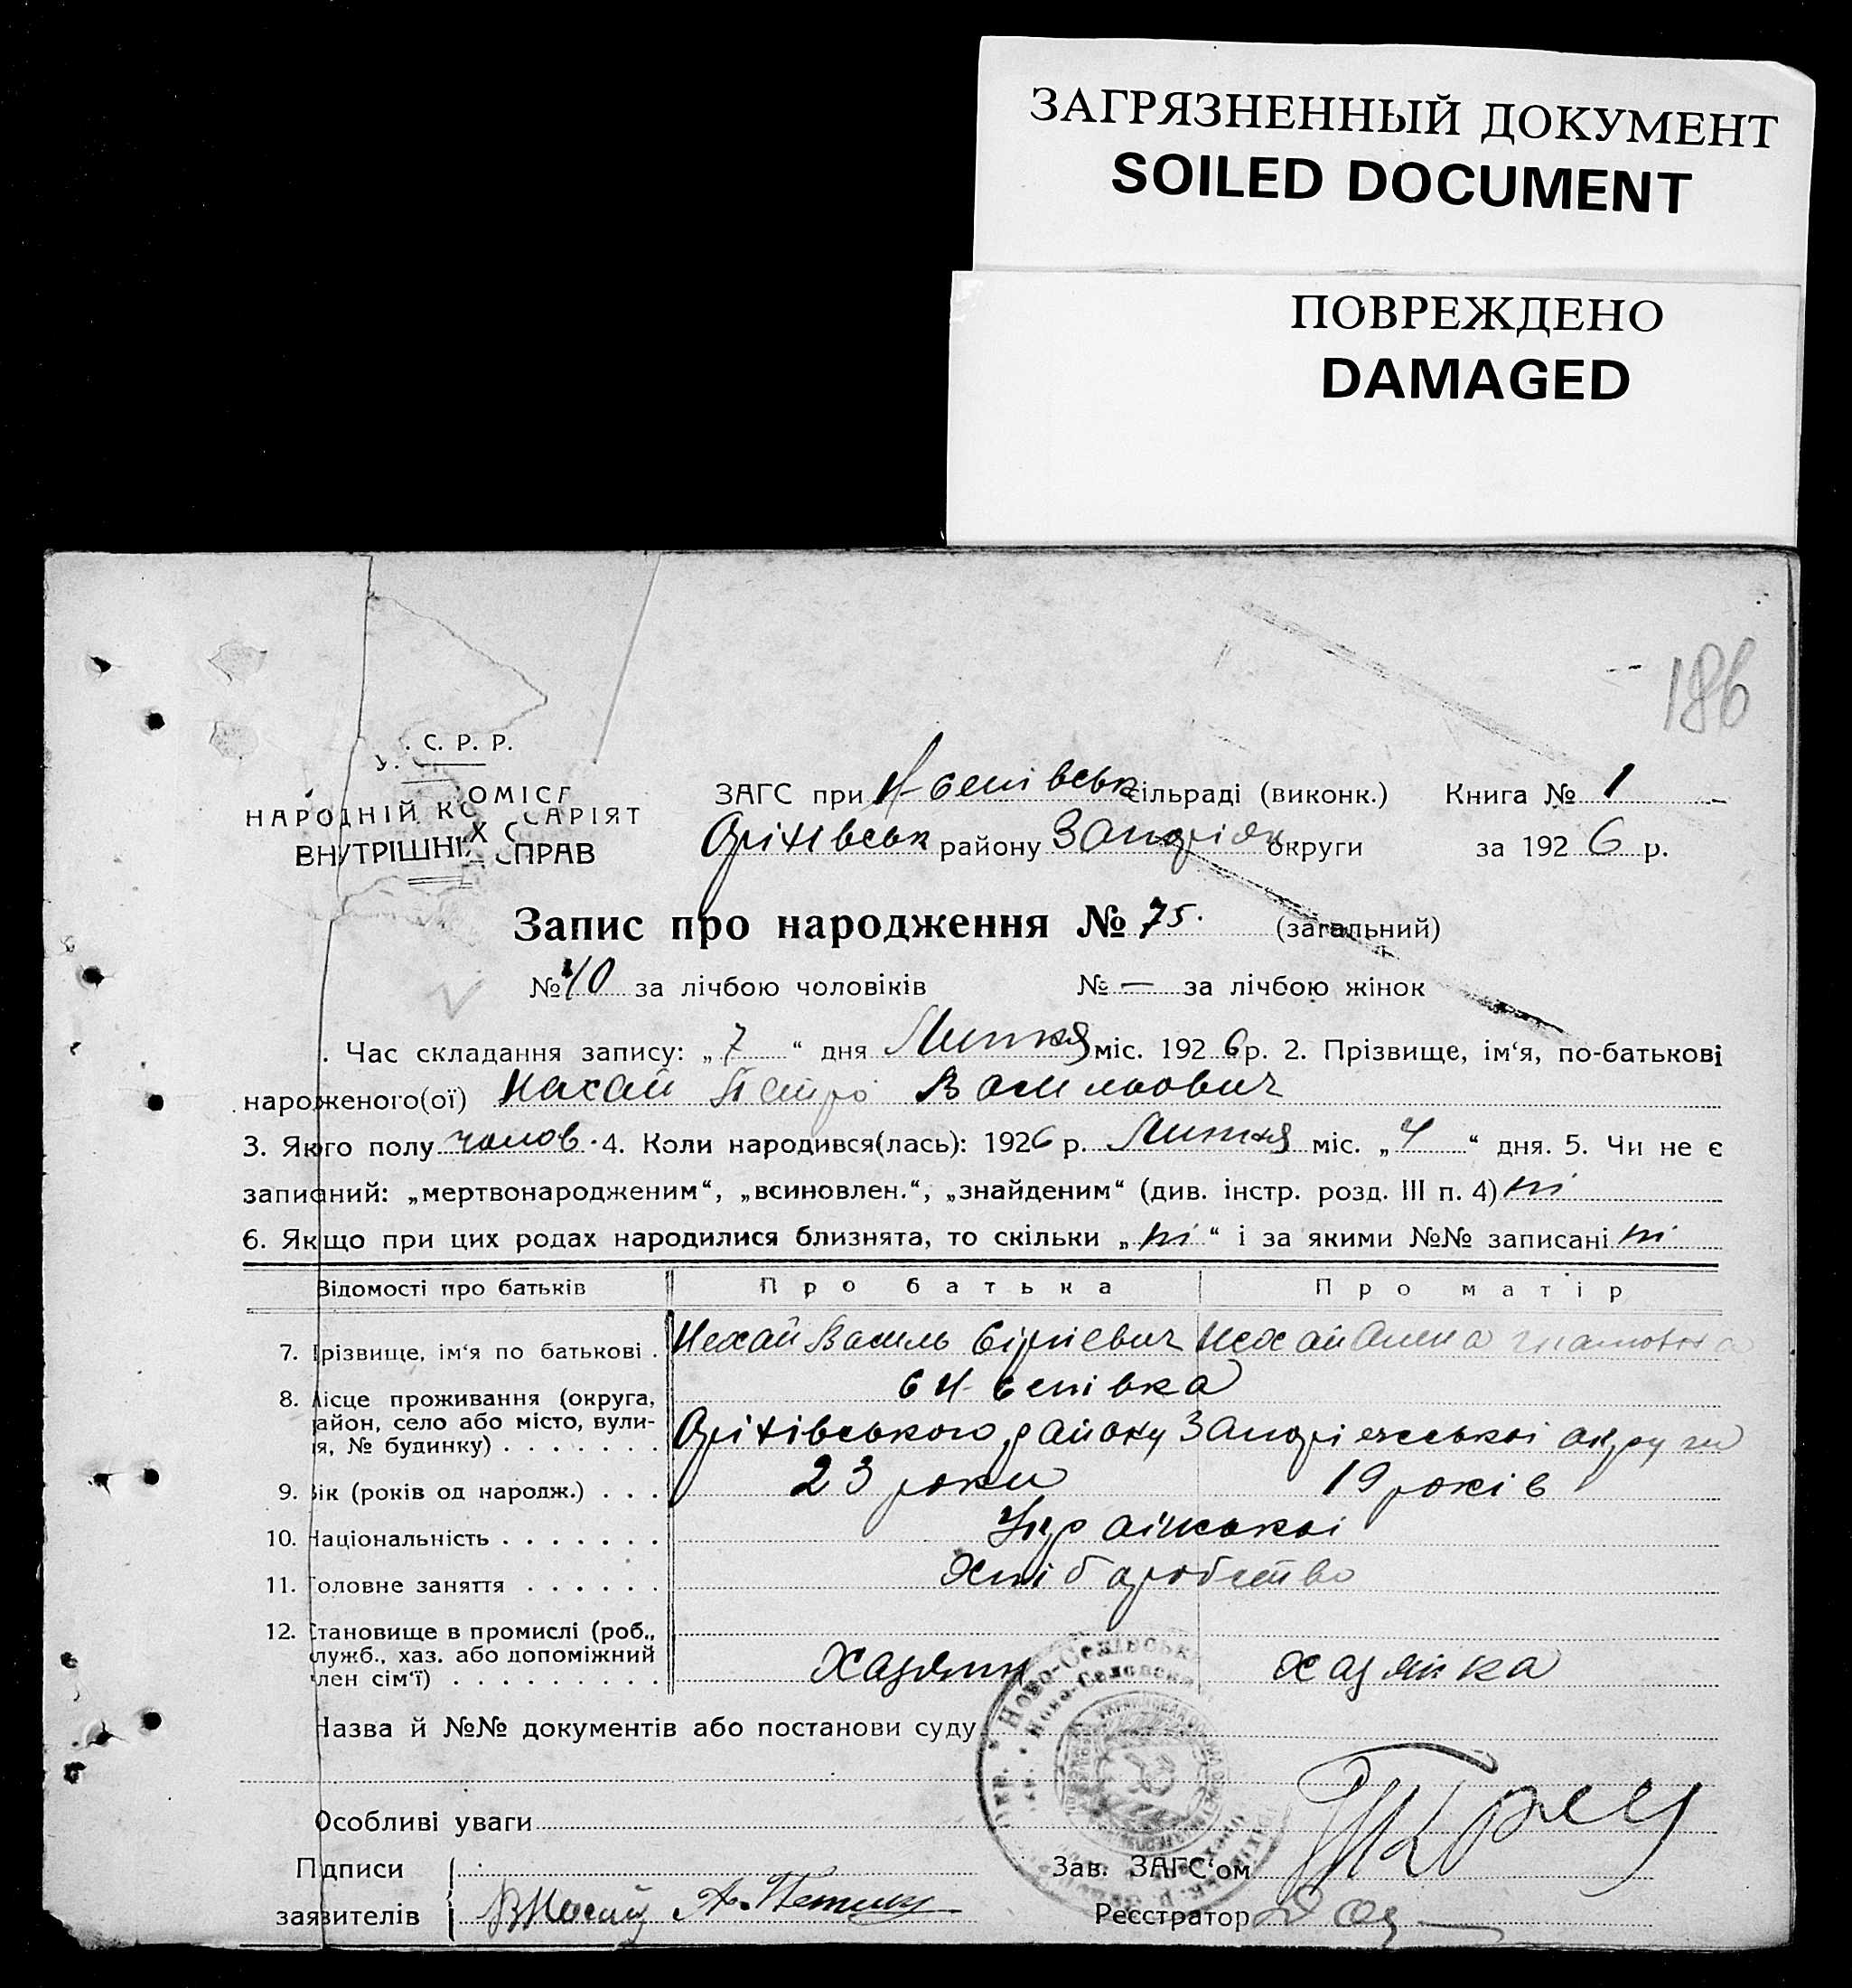 ЗАГРЯЗНЕННЫЙ ДОКУМЕНТ
SOILED DOCUMENT
ПОВРЕЖДЕНО
DAMAGED
186
У. С. Р. Р.
НАРОДНІЙ КОМІСАРІЯТ
ВНУТРІШНІХ СПРАВ
ЗАГС при Н-Селівськ сільраді (виконк.) Книга № 1
Оріхівськ району Запоріжк округи за 1926 р.
Запис про народження № 75. (загальний)
№ 40 за лічбою чоловіків № — за лічбою жінок
. Час складання запису: „7“ дня Липня міс. 1926 р. 2. Прізвище, ім‘я, по-батькові
нароженого(ої) Нехай Петро Васильович
3. Якого полу чолов. 4. Коли народився(лась): 1926 р. Липня міс. „4“ дня. 5. Чи не є
записаний: „мертвонародженим“, „всиновлен.“, „знайденим“ (див. інстр. розд. III п. 4) ні
6. Якщо при цих родах народилися близнята, то скільки „ні“ і за якими №№ записані ні
Відомості про батьків Про батька Про матір
7. Прізвище, ім‘я по батькові . Нехай Василь Нехай
8. Місце проживання (округа, с Н-Селівка
район, село або місто, вули-
ця, № будинку) . . . . . . . Оріхівського району Запоріжської округи
9. Вік (років од народж.) . . . 23 роки 19 років
10. Національність . . . . . . . Української
11. Головне заняття . . . . . . Хліборобство
12. Становище в промислі (роб.,
служб., хаз. або допоміжний
член сім‘ї) . . . . . . . . . Хазяїн хазяйка
Назва й №№ документів або постанови суду
Ново-Селівськ
Ново-Селовский
Особливі уваги
Підписи
Зав. ЗАГС‘ом
заявителів
Реєстратор